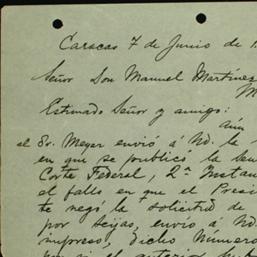 Caracas 7 de Junio de 1
Señor Don Manuel Martínez
M
Estimado Señor y amigo:
Aún
el Sr. Meyer envió á Ud. la
en que se publicó la Sen
Corte Federal, 2ª Instan
el fallo en que el Presi
te negó la solicitud de
por Seijas, envió á Ud.
impreso, dicho número